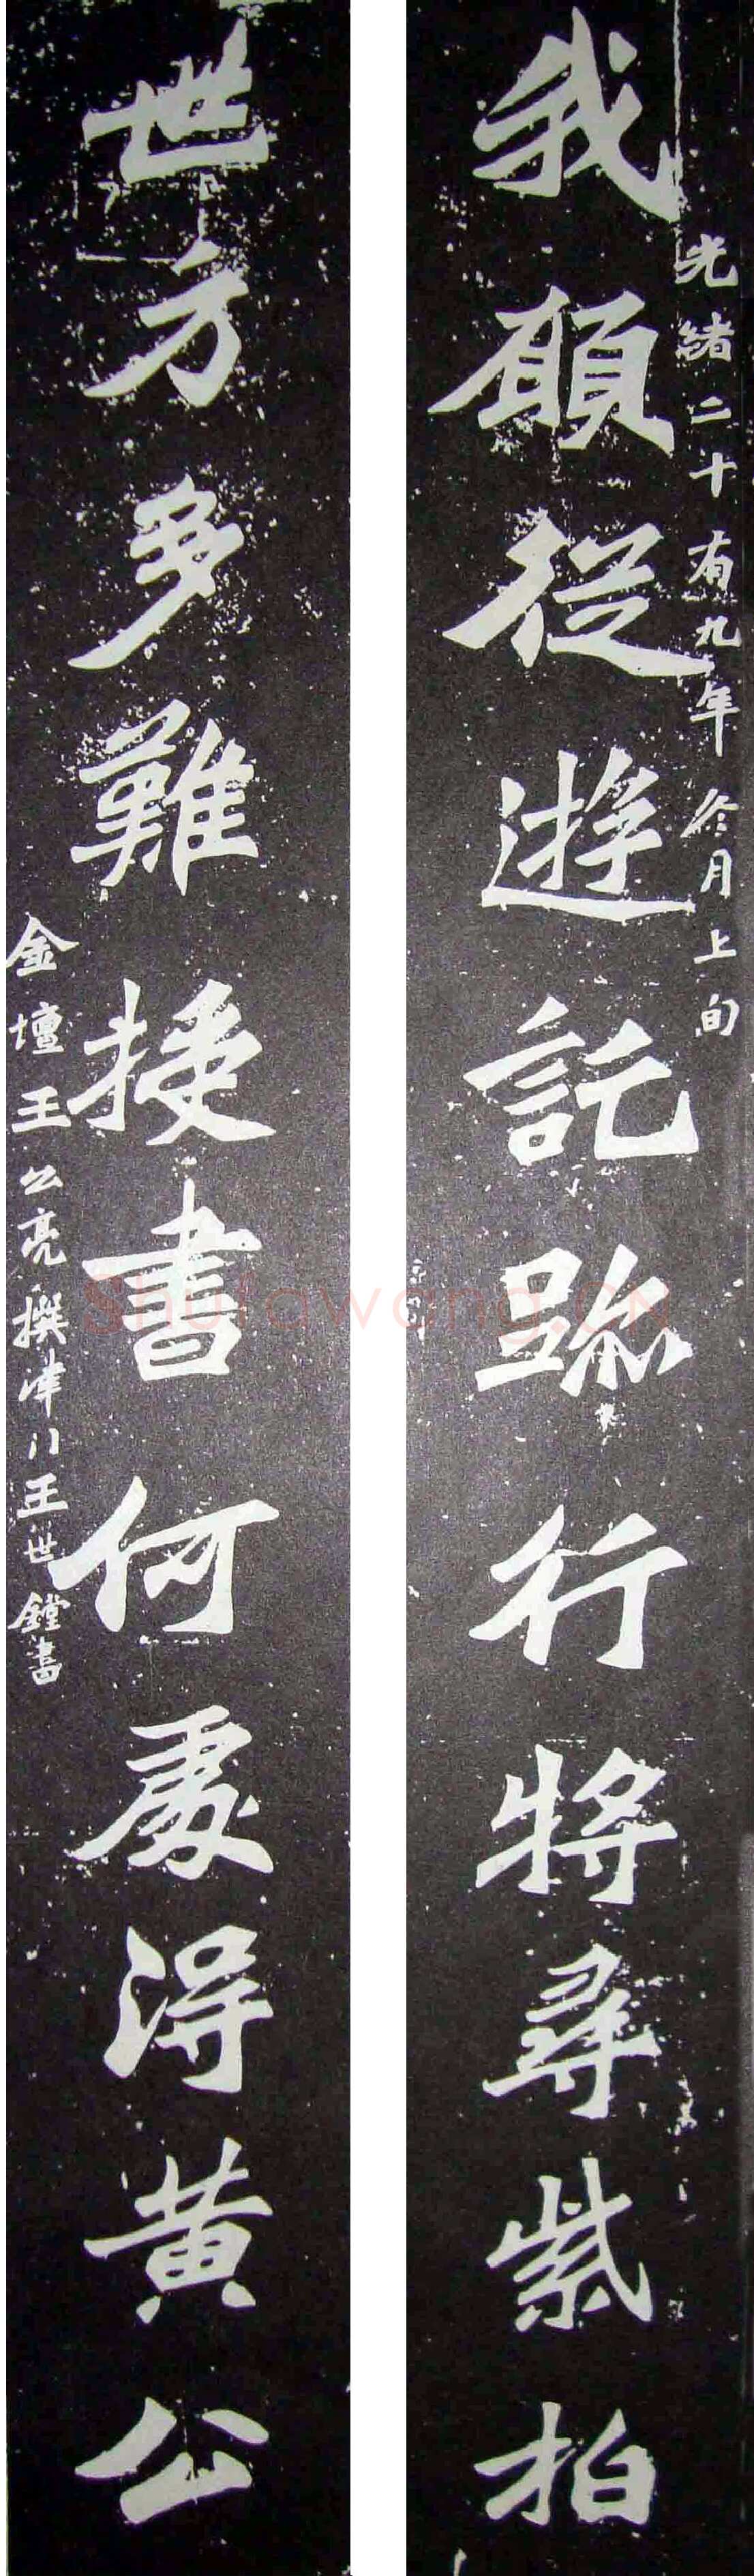 光緒二十有九年冬月上旬
我願從遊託跡行將尋紫柏
世方多難授書何處得黃公
金壇王公亮撰津門王世鏜書
Shufawang.CN